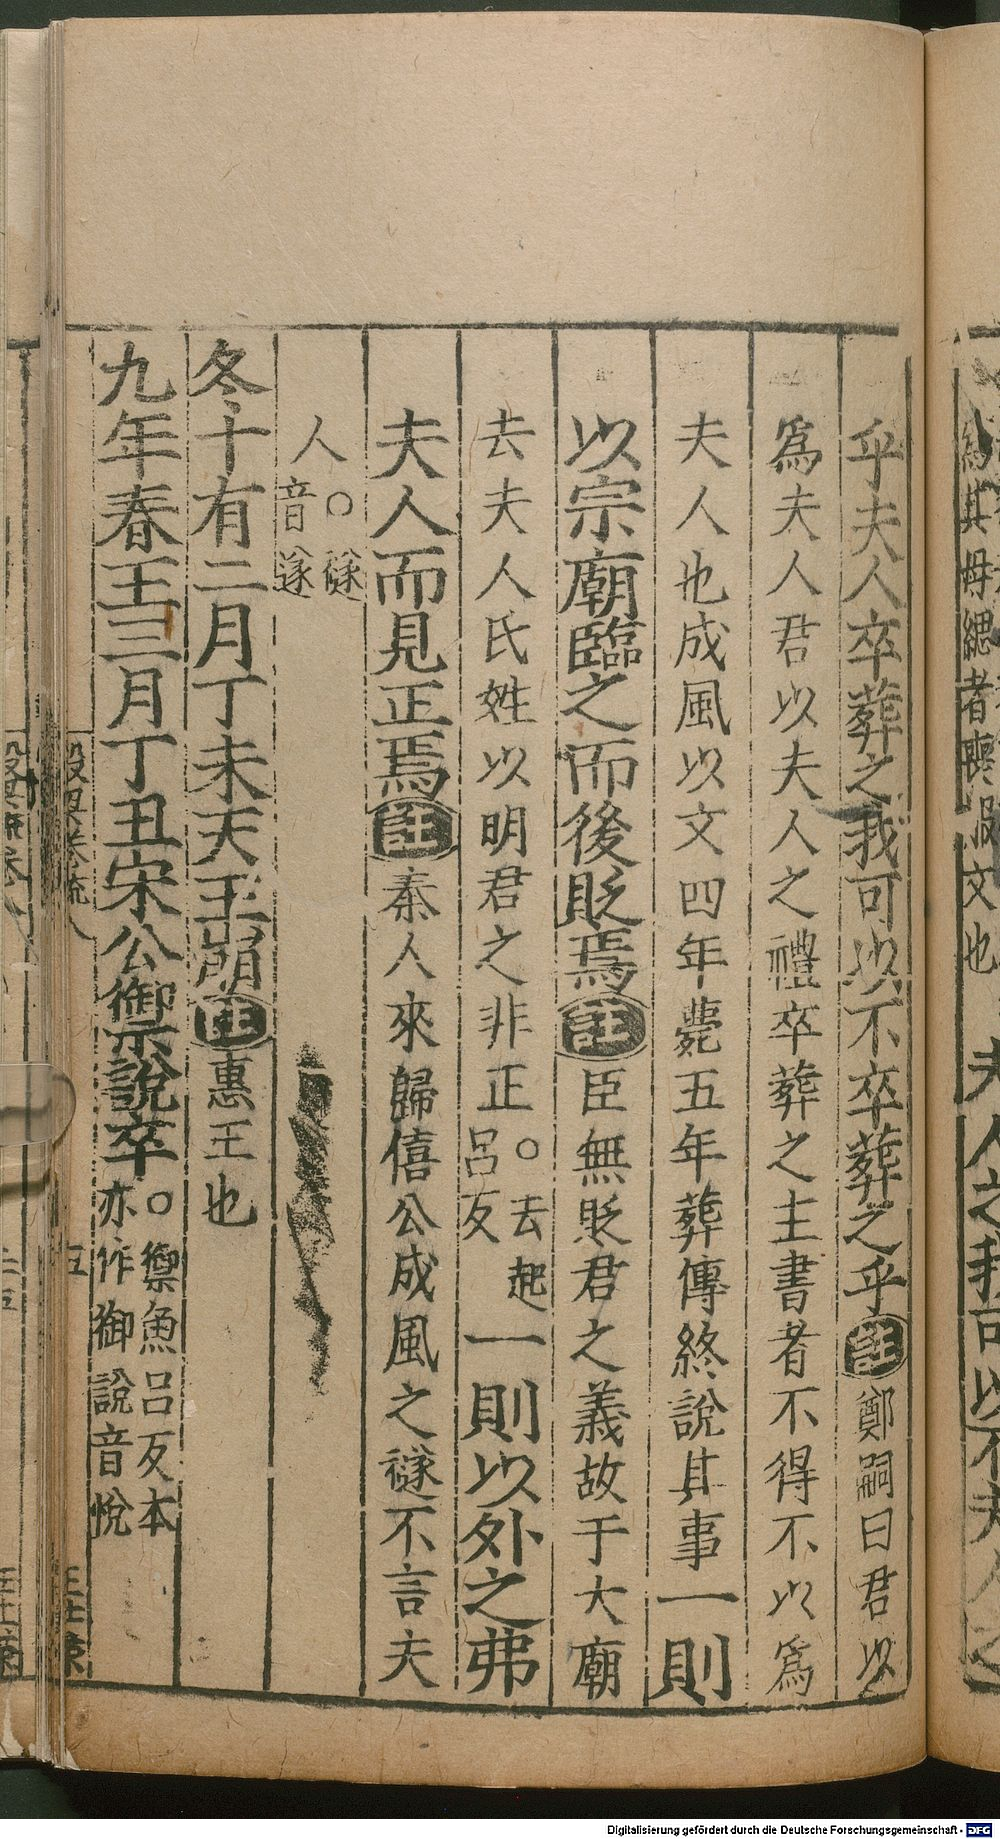 乎夫人卒葬之我可以不卒葬之乎註鄭嗣曰君以
爲夫人君以夫人之禮卒葬之主書者不得不以爲
夫人也成風以文四年薨五年葬傳終說其事一則
以宗廟臨之而後貶焉註臣無貶君之義故于大廟
去夫人氏姓以明君之非正○去起呂反一則以外之弗
夫人而見正焉註秦人來歸僖公成風之襚不言夫
人○襚音遂
冬十有二月丁未天王崩註惠王也
九年春王三月丁丑宋公禦說卒○禦魚呂反本亦作御說音悅
五
Digitalisierung gefördert durch die Deutsche Forschungsgemeinschaft - DFG